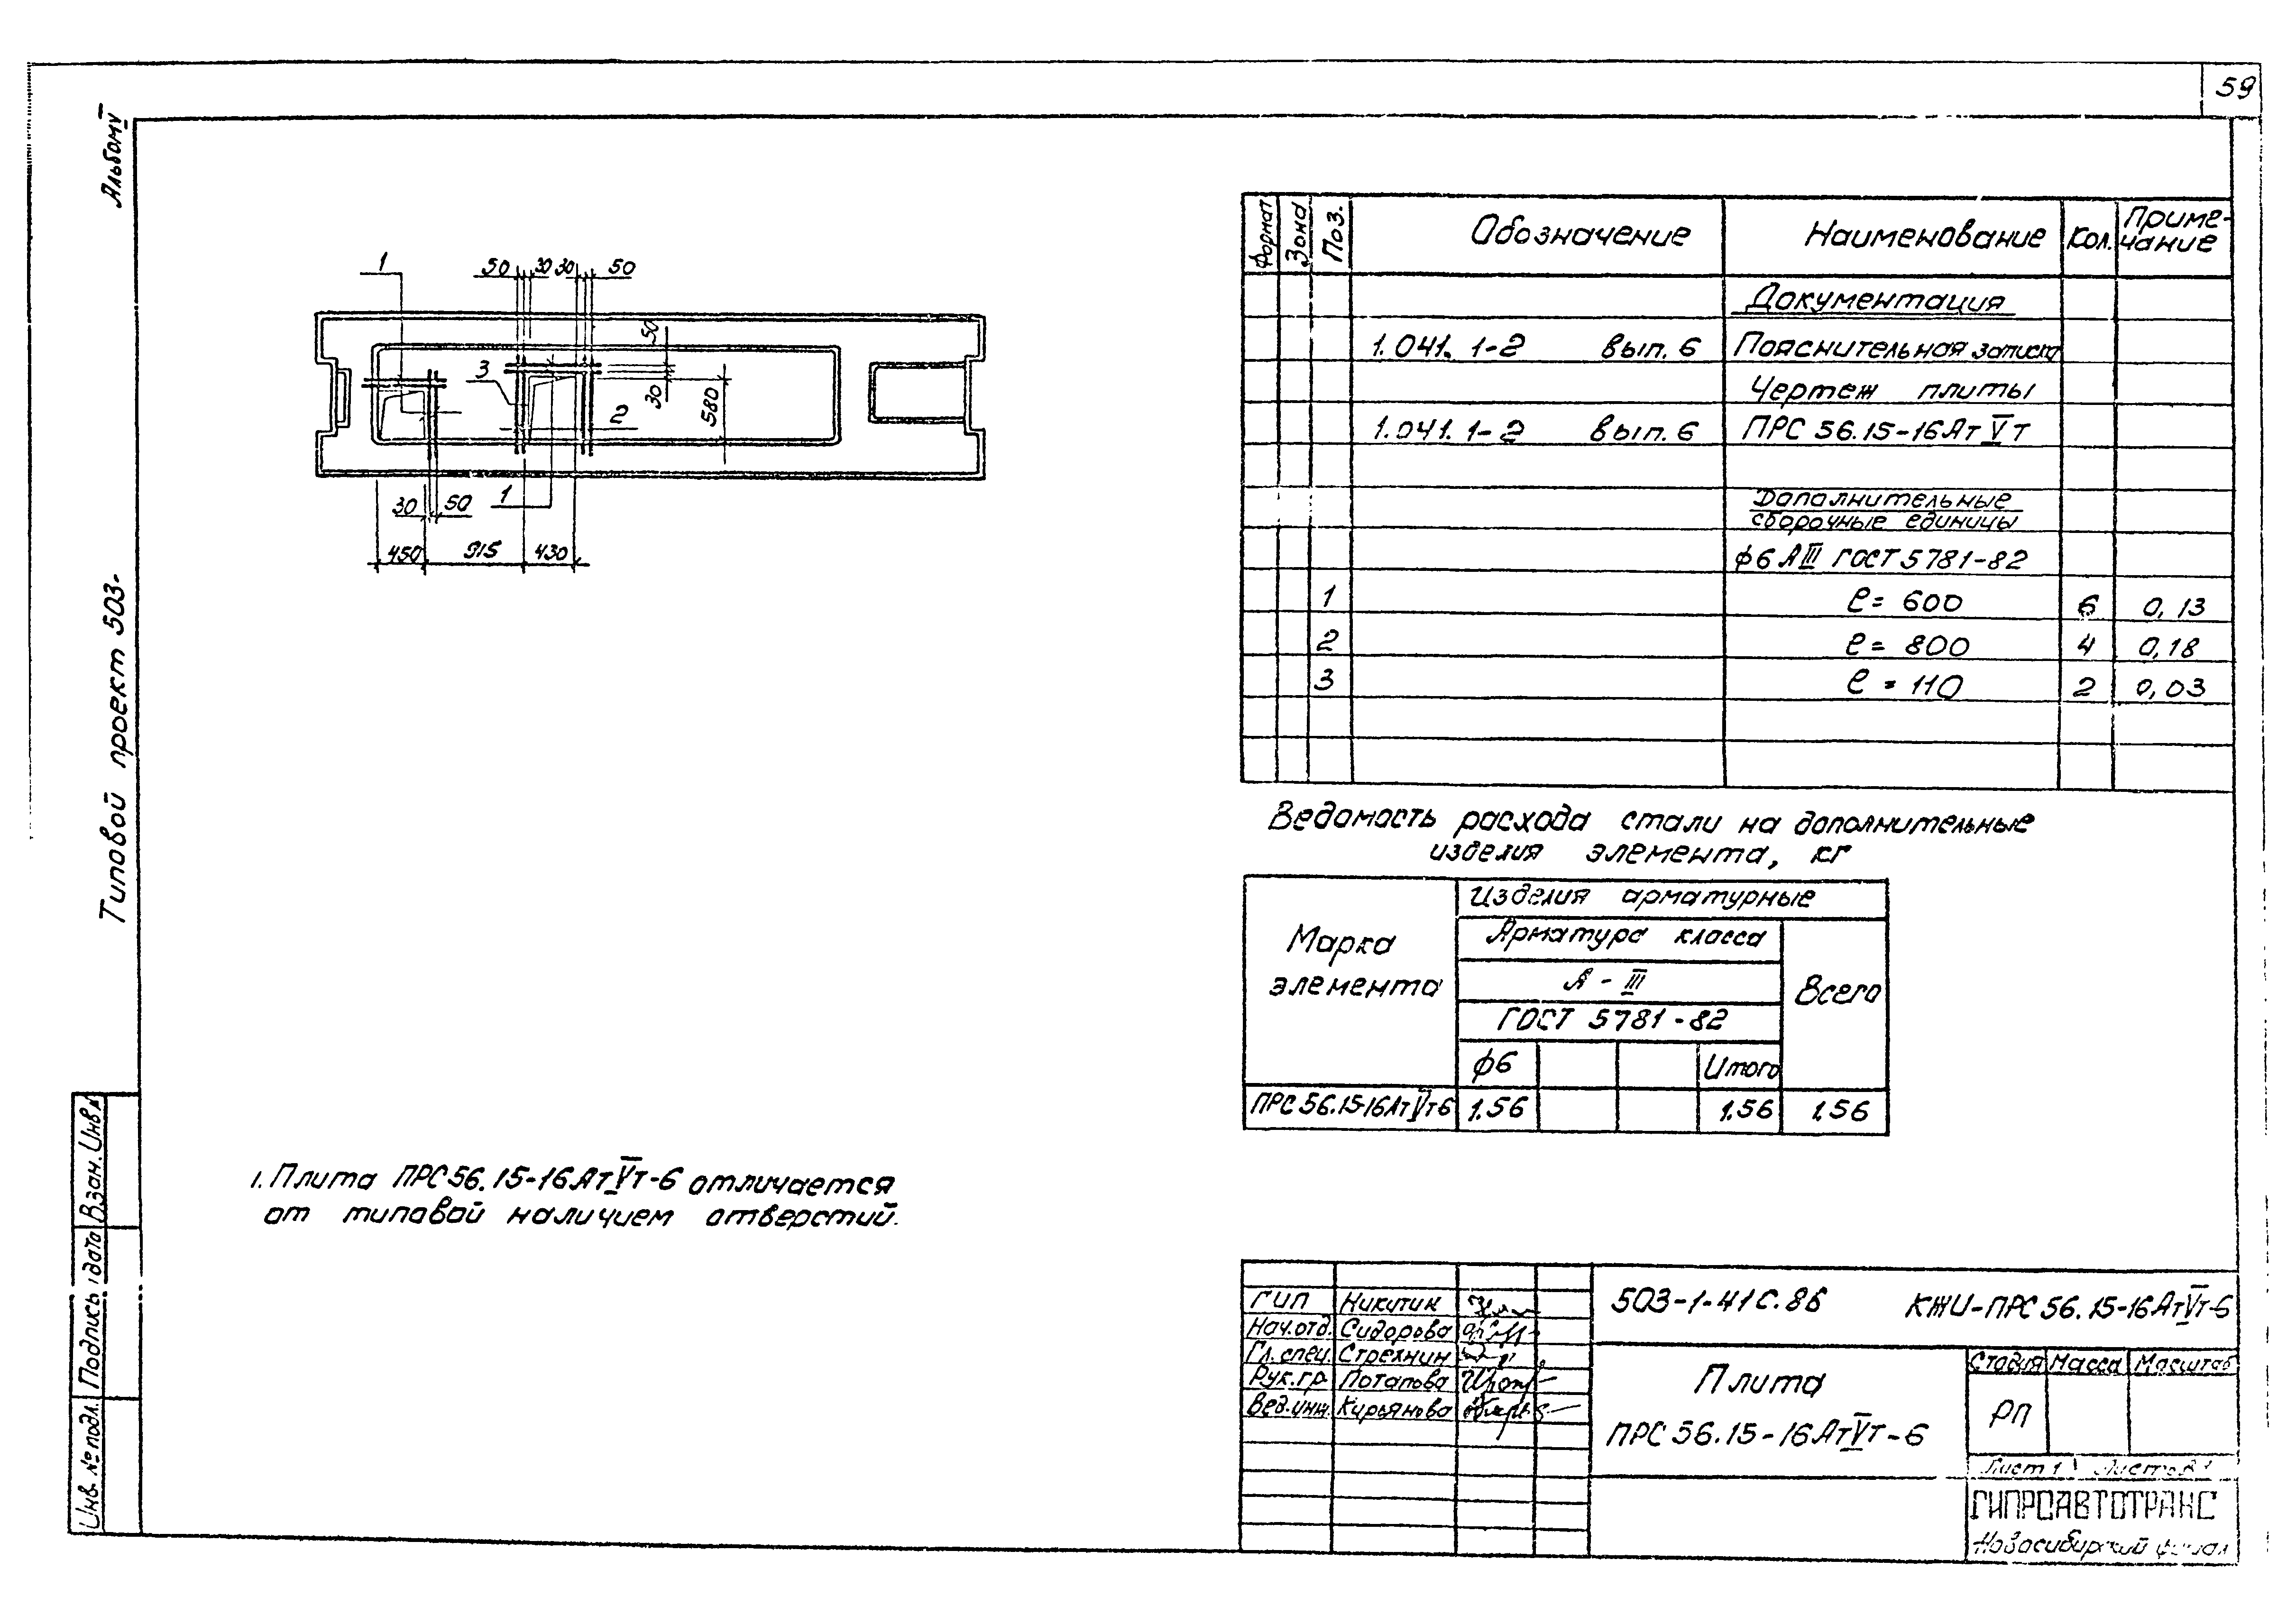 59
Альбом V
Типовой проект 503-
1
50 30 30 50
50
3
30
580
2
30 50
1
450 915 430
Формат Зона Поз. Обозначение Наименование Кол. Приме-
чание
Документация
1.041.1-2 вып. 6 Пояснительная записка
Чертеж плиты
1.041.1-2 вып. 6 ПРС 56.15-16АтVт
Дополнительные
сборочные единицы
ф6 АIII ГОСТ 5781-82
1 ℓ= 600 6 0,13
2 ℓ= 800 4 0,18
3 ℓ = 110 2 0,03
Ведомость расхода стали на дополнительные
изделия элемента, кг
Марка
элемента
Изделия арматурные
Арматура класса
А - III
ГОСТ 5781-82
Всего
ф6 Итого
ПРС 56.15-16АтVт6 1.56 1.56 1.56
1. Плита ПРС 56.15-16АтVт-6 отличается
от типовой наличием отверстий.
Взам. Инв.№
Подпись и дата
Инв. № подл.
ГИП Никитин
Нач.отд. Сидорова
Гл. спец. Стрехнин
Рук.гр. Потапова
Вед.инж. Кирьянова
503-1-41С.86 КЖИ-ПРС 56.15-16АтVт-6
Плита
ПРС 56.15-16АтVт-6
Стадия Масса Масштаб
РП
Лист 1 Листов 1
ГИПРОАВТОТРАНС
Новосибирский филиал